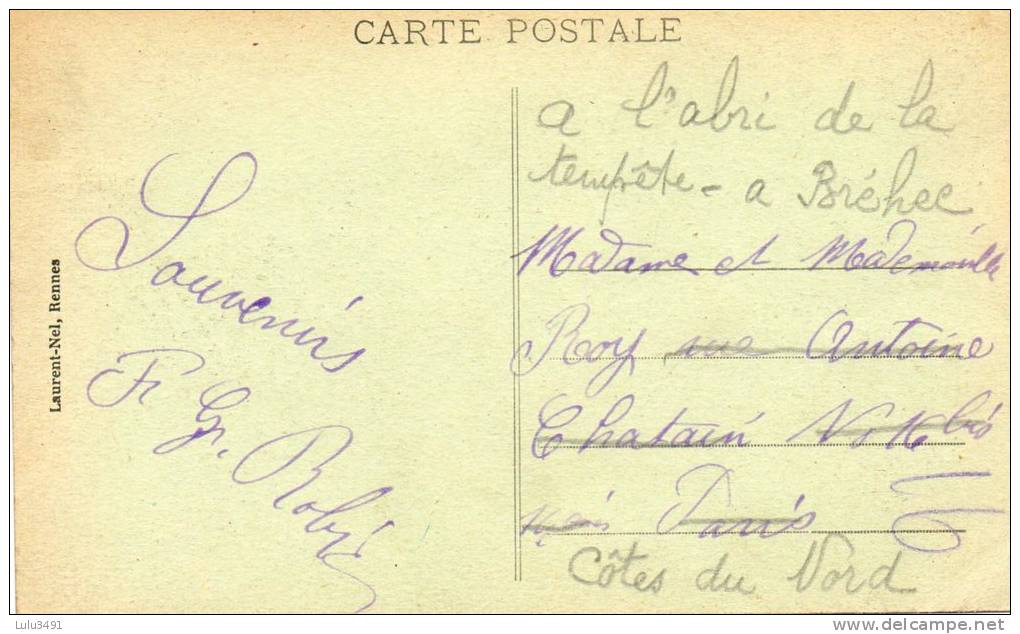 CARTE POSTALE
Laurent-Nel, Rennes
Souvenirs
Fr G. Robi
a l'abri de la
tempête - a Bréhec
Madame et Mademoiselle
Roy rue Antoine
Chatain No 16 bis
Paris
Côtes du Nord
Lulu3491
delcampe.net